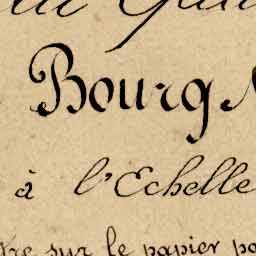 Bourg
à l'Echelle
sur le papier